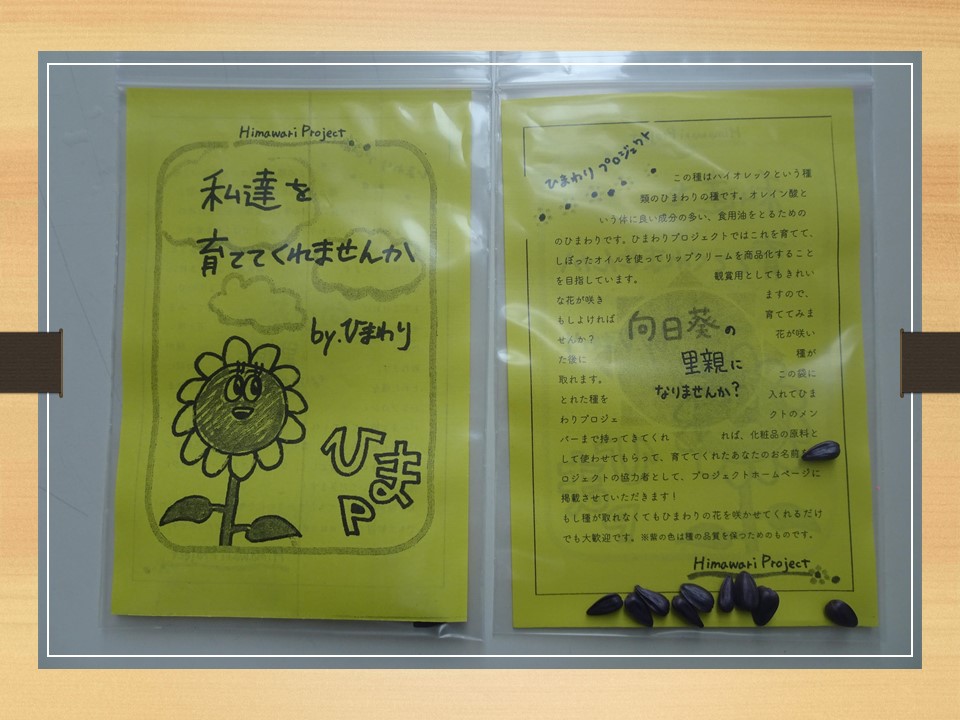 Himawari Project
私達を
育ててくれませんか
by.ひまわり
ひま
P
ひまわりプロジェクト
この種はハイオレックという種
類のひまわりの種です。オレイン酸と
いう体に良い成分の多い、食用油をとるための
のひまわりです。ひまわりプロジェクトではこれを育てて、
しぼったオイルを使ってリップクリームを商品化すること
を目指しています。 観賞用としてもきれい
な花が咲き ますので、
もしよければ 育ててみま
せんか? 花が咲い
た後に 種が
取れます。 この袋に
とれた種を 入れてひま
わりプロジェ クトのメン
バーまで持ってきてくれ れば、化粧品の原料と
して使わせてもらって、育ててくれたあなたのお名前を
ロジェクトの協力者として、プロジェクトホームページに
掲載させていただきます!
もし種が取れなくてもひまわりの花を咲かせてくれるだけ
でも大歓迎です。※紫の色は種の品質を保つためのものです。
向日葵の
里親に
なりませんか?
Himawari Project